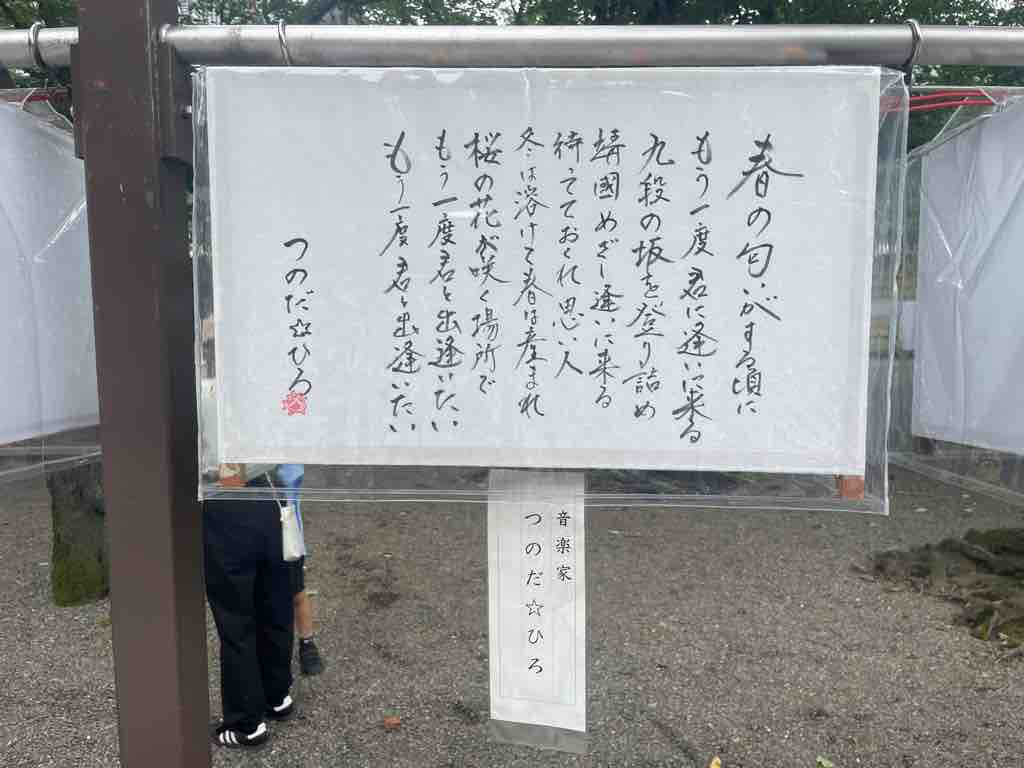 春の匂いがする頃に
もう一度君に逢いに来る
九段の坂を登り詰め
靖國めざし逢いに来る
待ってておくれ思い人
冬は溶けて春は産まれ
桜の花が咲く場所で
もう一度君と出逢いたい
もう一度君と出逢いたい
つのだ☆ひろ
音楽家
つのだ☆ひろ